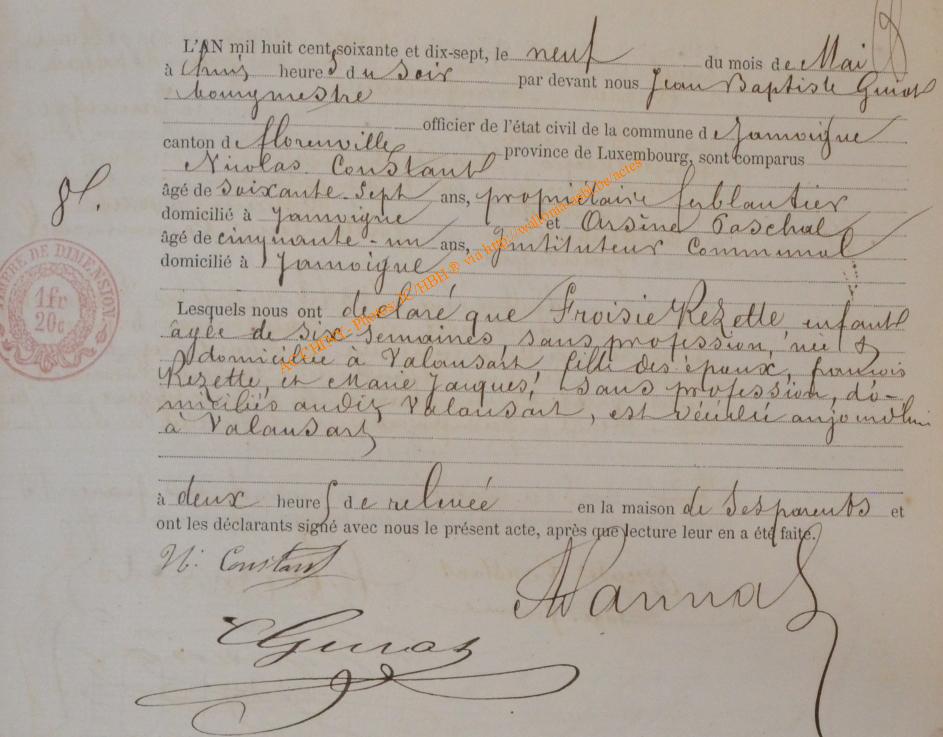 L'AN mil huit cent soixante et dix-sept, le neuf du mois de Mai
à heures du soir par devant nous Jean Baptiste Guiot
bourgmestre
officier de l'état civil de la commune de Jamoigne
canton de florenville province de Luxembourg, sont comparus
Nicolas Constant
âgé de soixante-sept ans, propriétaire ferblantier
domicilié à Jamoigne et Arsène Paschal
âgé de cinquante-un ans, Instituteur Communal
domicilié à Jamoigne
Lesquels nous ont declaré que Froisie Rezette, enfant
âgée de six semaines, sans profession, née &
domiciliée à Valansart, fille des époux, françois
Rezette, et Marie Jacques, sans profession, do-
miciliés audit Valansart, est décédée aujourd'hui
à Valansart
à deux heures de relevée en la maison de ses parents et
ont les déclarants signé avec nous le présent acte, après que lecture leur en a été faite.
N. Constant
Guiot
TIMBRE DE DIMENSION
1 fr
20 c
via http://wallonia
be/actes